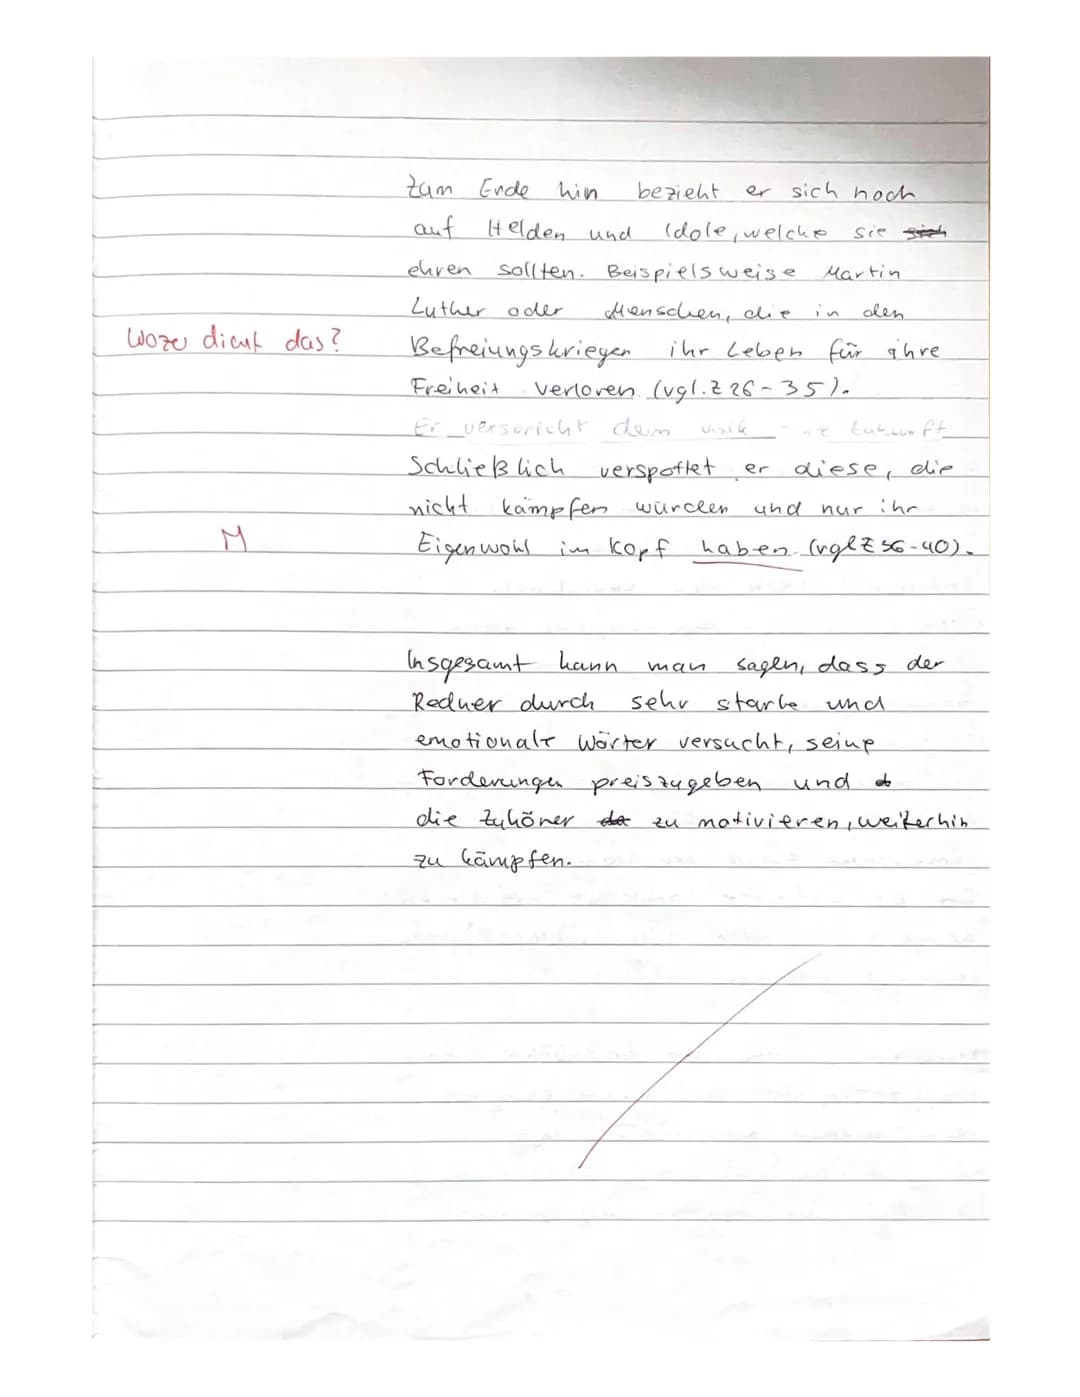 Zum Ende hin bezieht er sich noch
auf Helden und Idole, welche sie sich
ehren sollten. Beispielsweise Martin
Luther oder Menschen, die in den
Wozu dient das?
Befreiungskriegen ihr Leben für ihre
Freiheit verloren (vgl. Z 26-35).
Er verspricht dem
Schließlich verspottet er diese, die
nicht kämpfen würden und nur ihr
M
Eigenwohl im Kopf haben (vgl Z 36-40).
Insgesamt kann man sagen, dass der
Redner durch sehr starke und
emotionale Wörter versucht, seine
Forderungen preiszugeben und
die Zuhörer zu motivieren, weiterhin
zu kämpfen.